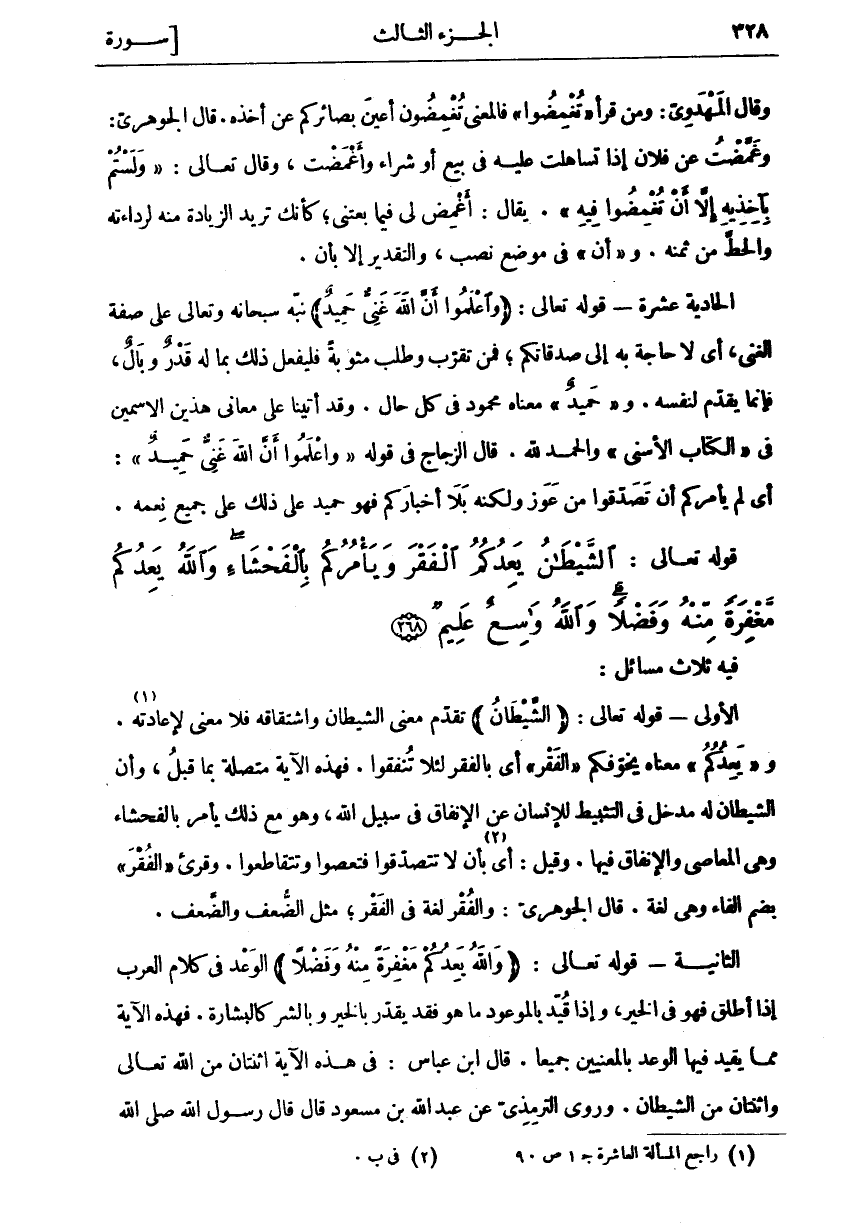 ٣٢٨ الجـــزء الثالث [ســـورة
وقال المَهْدَوِىّ: ومن قرأ «تُغْمِضُوا» فالمعنى تُغْمِضُون أعينَ بصائركم عن أخذه. قال الجوهرىّ:
وغَمَّضْتُ عن فلان إذا تساهلت عليـه فى بيع أو شراء وأَغْمَضْت ، وقال تعـالى : « وَلَسْتُمْ
بِآخِذِيهِ إِلَّا أَنْ تُغْمِضُوا فِيهِ » . يقال : أَغْمِض لى فيما بعتنى؛ كأنك تريد الزيادة منه لرداءته
والحطَّ من ثمنه . و« أن » فى موضع نصب ، والتقدير إلا بأن .
الحادية عشرة — قوله تعالى : ﴿وَٱعْلَمُوا أَنَّ ٱللهَ غَنِىٌّ حَمِيدٌ﴾ نبّه سبحانه وتعالى على صفة
الغنى، أى لا حاجة به إلى صدقاتكم ؛ فمن تقرّب وطلب مثوبةً فليفعل ذلك بما له قَدْرٌ وبَالٌ،
فإنما يقدّم لنفسه . و« حَمِيدٌ » معناه محمود فى كل حال . وقد أتينا على معانى هذين الاسمين
فى « الكتاب الأسنى » والحمـد لله . قال الزجاج فى قوله « واعْلَمُوا أَنَّ اللهَ غَنِىٌّ حَمِيـدٌ » :
أى لم يأمركم أن تَصَدّقوا من عَوَز ولكنه بَلَا أخبارَكم فهو حميد على ذلك على جميع نِعمه .
قوله تعـالى : ٱلشَّيْطَٰنُ يَعِدُكُمُ ٱلْفَقْرَ وَيَأْمُرُكُم بِٱلْفَحْشَاءِ ۖ وَٱللَّهُ يَعِدُكُم
مَّغْفِرَةً مِّنْهُ وَفَضْلًا ۗ وَٱللَّهُ وَٰسِعٌ عَلِيمٌ ﴿٢٦٨﴾
فيه ثلاث مسائل :
الأولى — قوله تعالى : ﴿ الشَّيْطَانُ ﴾ تقدّم معنى الشيطان واشتقاقه فلا معنى لإعادته (١) .
و« يَعِدُكُمُ » معناه يخوّفكم «الفَقْر» أى بالفقر لئلا تُنفقوا . فهذه الآية متصلة بما قبلُ ، وأن
الشيطان له مدخل فى التثبيط للإنسان عن الإنفاق فى سبيل الله ، وهو مع ذلك يأمر بالفحشاء
وهى المعاصى والإنفاق فيها . وقيل : أى (٢) بأن لا تتصدّقوا فتعصوا وتتقاطعوا . وقرئ «الفُقْرَ»
بضم الفاء وهى لغة . قال الجوهرىّ : والفُقْر لغة فى الفَقْر ؛ مثل الضُّعف والضَّعف .
الثانيـــة — قوله تعـالى : ﴿ وَاللهُ يَعِدُكُمْ مَغْفِرَةً مِنْهُ وَفَضْلًا ﴾ الوَعْد فى كلام العرب
إذا أطلق فهو فى الخير، وإذا قُيِّد بالموعود ما هو فقد يقدّر بالخير وبالشر كالبشارة . فهذه الآية
ممـا يقيد فيها الوعد بالمعنيين جميعا . قال ابن عباس : فى هـذه الآية اثنتان من الله تعـالى
واثنتان من الشيطان . وروى الترمِذىّ عن عبد الله بن مسعود قال قال رسـول الله صلى الله
(١) راجع المسألة العاشرة جـ ١ ص ٩٠ (٢) فى ب .